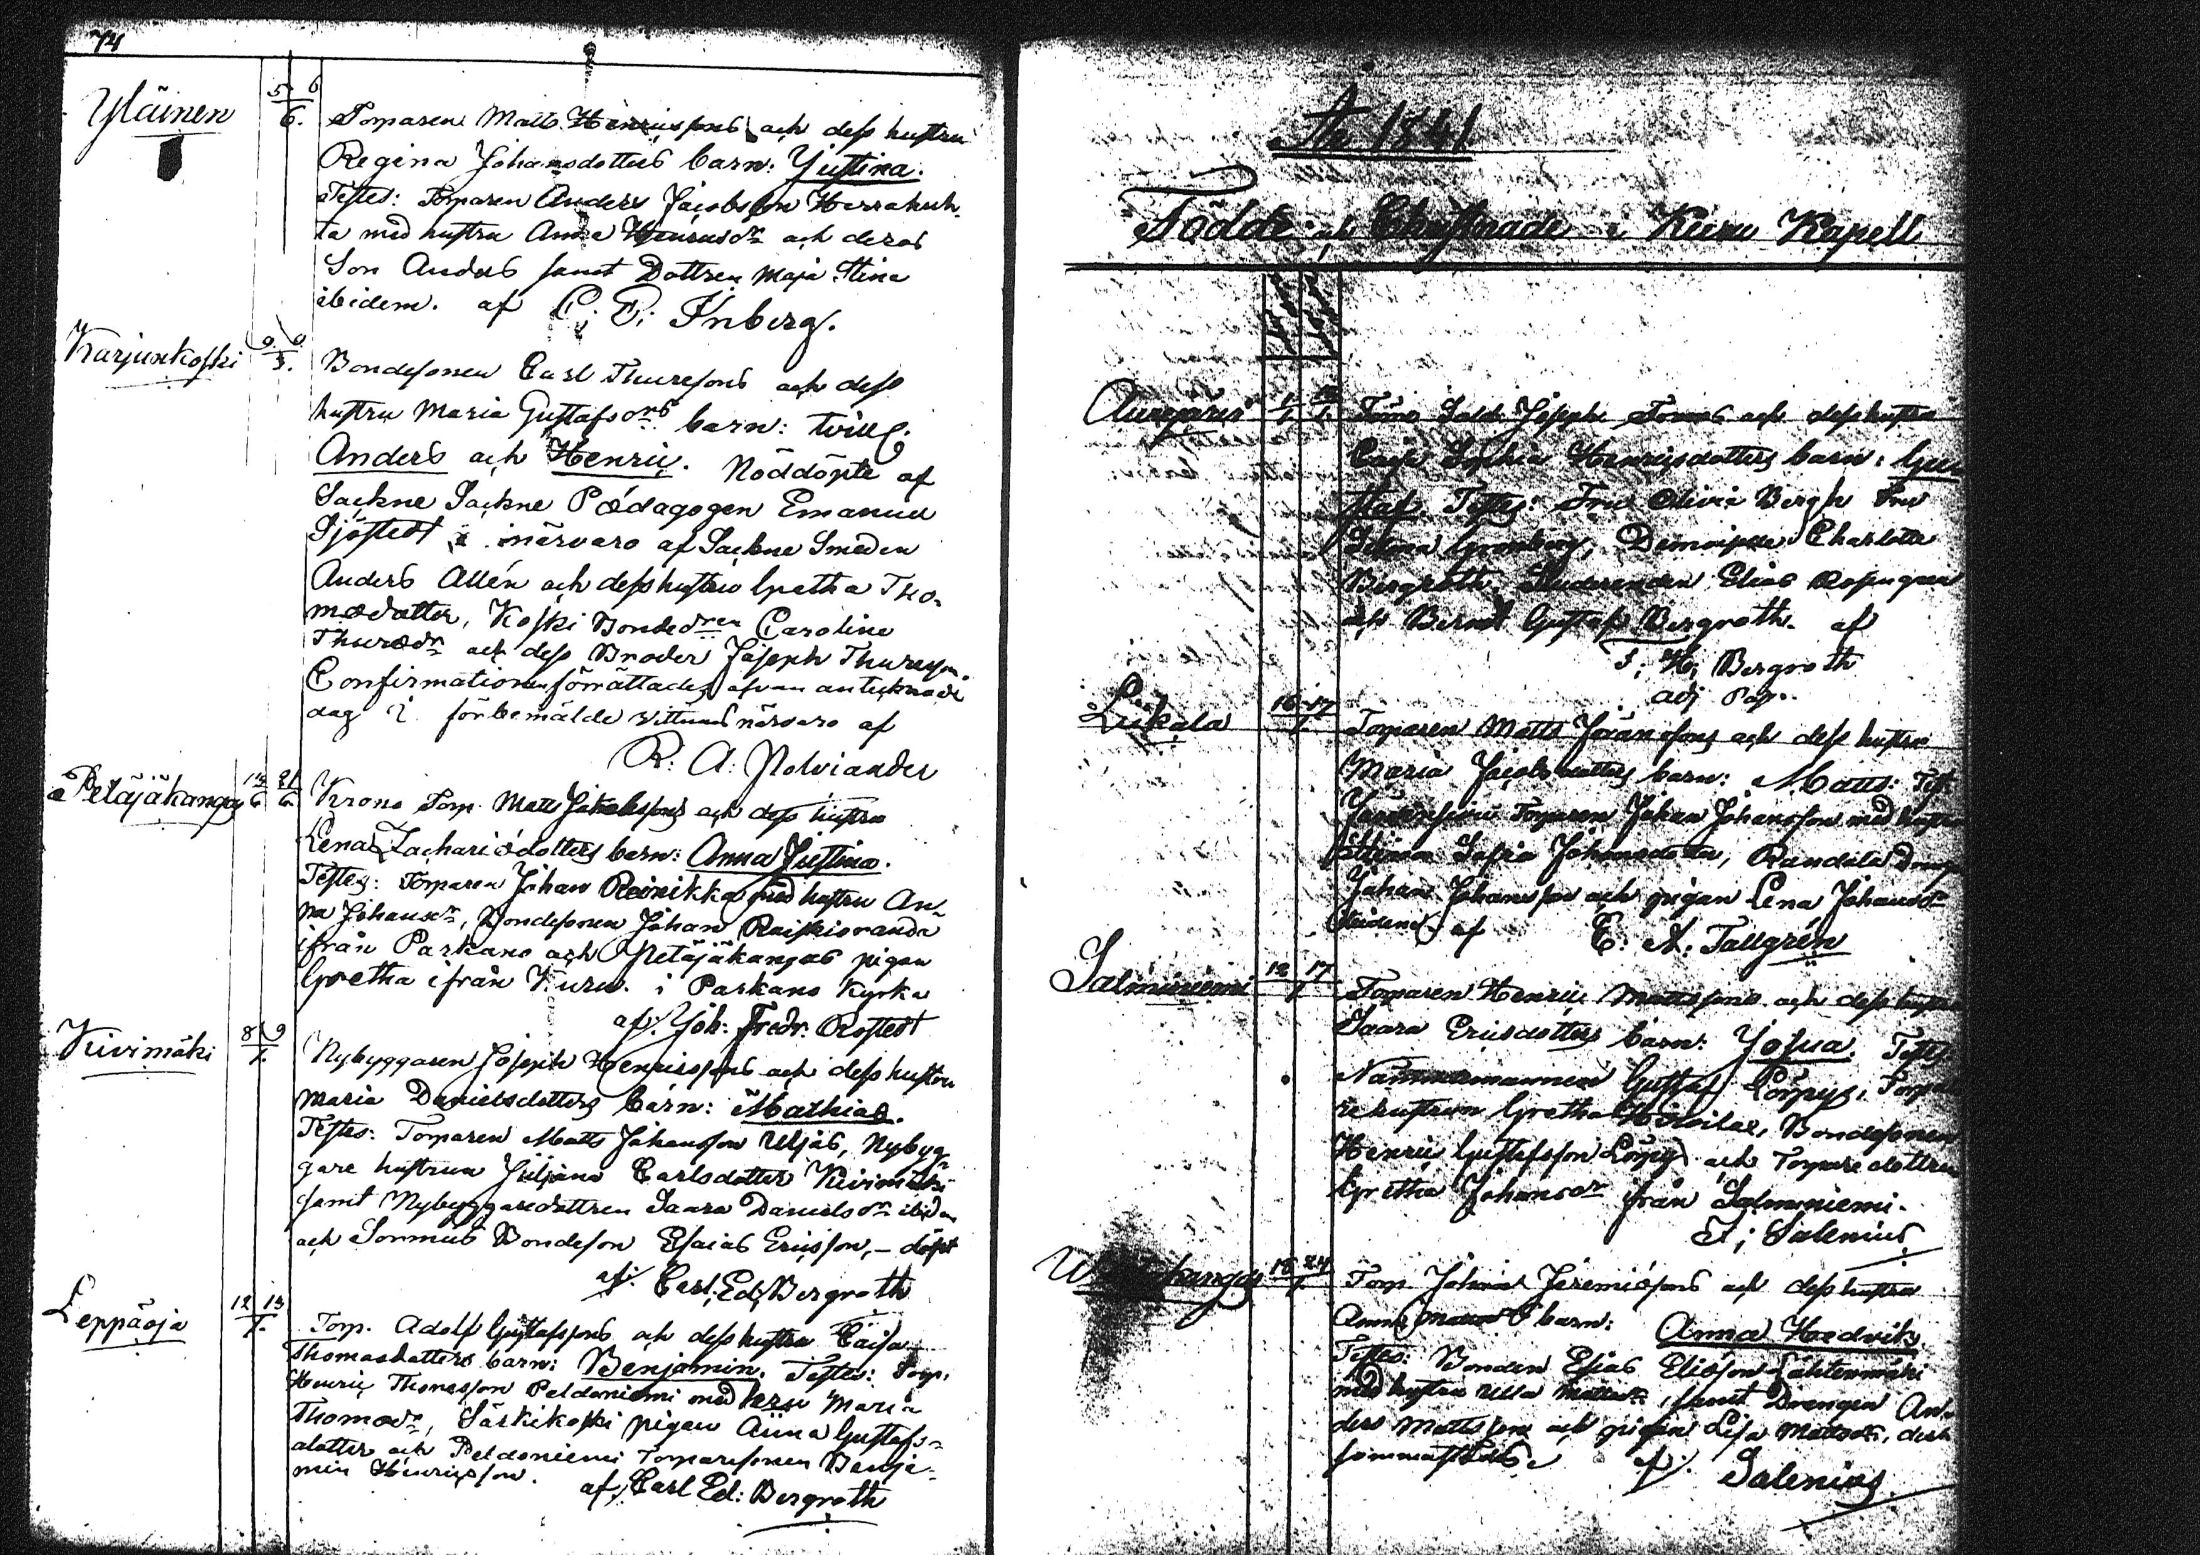 74
Yläinen
5 6
6.
Torparen Matts Henricssons och dess hustru
Regina Johansdotters barn: Justina.
Testes: Torparen Anders Jacobsson Harrahuh-
ta med hustru Anna Henricsdr och deras
Son Anders samt Dottren Maja Stina
ibidem. af C; E; Inberg.
Karjunkoski
Bondesonen Carl Thuressons och dess
hustru Maria Gustafsdrs barn: tvill.
Anders och Henric. Nöddöpte af
Sockne Sockne Pædagogen Emanuel
Sjöstedt i närvaro af Sockne Smeden
Anders Allén och dess hustru Gretha Tho-
mædotter, Koski Bondedren Carolina
Thurædr och dess Broder Joseph Thuresson.
Confirmationen förrättades ofvan antecknade
dag i förbemälde vittnens närvaro af
R. A. Polviander
Petäjäkangas
13 21
6 6
Krono Torp. Matts Jakobssons och dess hustru
Lena Zachariædotters barn: Anna Justina.
Testes: Torparen Johan Reinikka med hustru An-
na Johansdr, Bondesonen Johan Raiskioranda
ifrån Parkano och Petäjäkangas pigan
Gretha ifrån Kuru. i Parkano Kyrka
af. Joh: Fredr. Rostedt
Kivimäki
8 9
7.
Nybyggaren Joseph Henricssons och dess hustru
Maria Danielsdotters barn: Mathias.
Testes: Torparen Matts Johansson Uljas, Nybyg-
gare hustrun Juljana Carlsdotter Kivimäki
samt Nybyggaredottren Saara Danielsdr ibidem
och Sormus Bondeson Esaias Ericsson, – döpt
af. Carl. Ed. Bergroth
Leppäoja
12 13
7.
Torp. Adolf Gustafssons och dess hustru Caisa
Thomasdotters barn: Benjamin. Testes: Torp.
Henric Thomasson Peldoniemi med hru Maria
Thomædr, Särkikoski pigan Anna Gustafs-
dotter och Peldoniemi Torparesonen Benja-
min Henricsson. af. Carl Ed: Bergroth
År 1841
Födde och Christnade i Kuru Kapell
Sold: Joseph och dess hustru
Caja Sophia Henricsdotters barn: Gus
staf. Testes: Fru Olivia Bergh Fru
Selma Grönberg, Demoiselle Charlotte
Bergroth Studeranden Elias
och Bernt Gustaf Bergroth. af
J. H; Bergroth
adj Past.
Liikala
16 17
1.
Torparen Matts och dess hustru
Maria Jacobsdotters barn: Matts: Test:
Torparen Johan Johansson med hustru
Sofia Johansdotter, Randala Dreng
Johan Johansson och pigan Lena Johansdr
ibidem. af E. A. Tallgrén
Salminiemi
12 17
1
Torparen Henric Mattssons och dess hustru
Saara Ericsdotters barn: Josua. Testes:
Nämndemannen Gustaf Törpys, Torpa
re hustrun Gretha Bondesonen
Henric Gustafsson Törpys och Torpare dottren
Gretha Johansdr från Salminiemi.
F; Salenius
18 24
1.
Torp. Johan Jeremiassons och dess hustru
Anna barn: Anna Hedvik.
Testes: Bonden Esias Eliasson Lähtenmäki
med hustru Ulla Mattsdr, samt Drengen An-
ders Mattsson och pigan Lisa Mattsdr, dert
sammastädes. af. Salenius